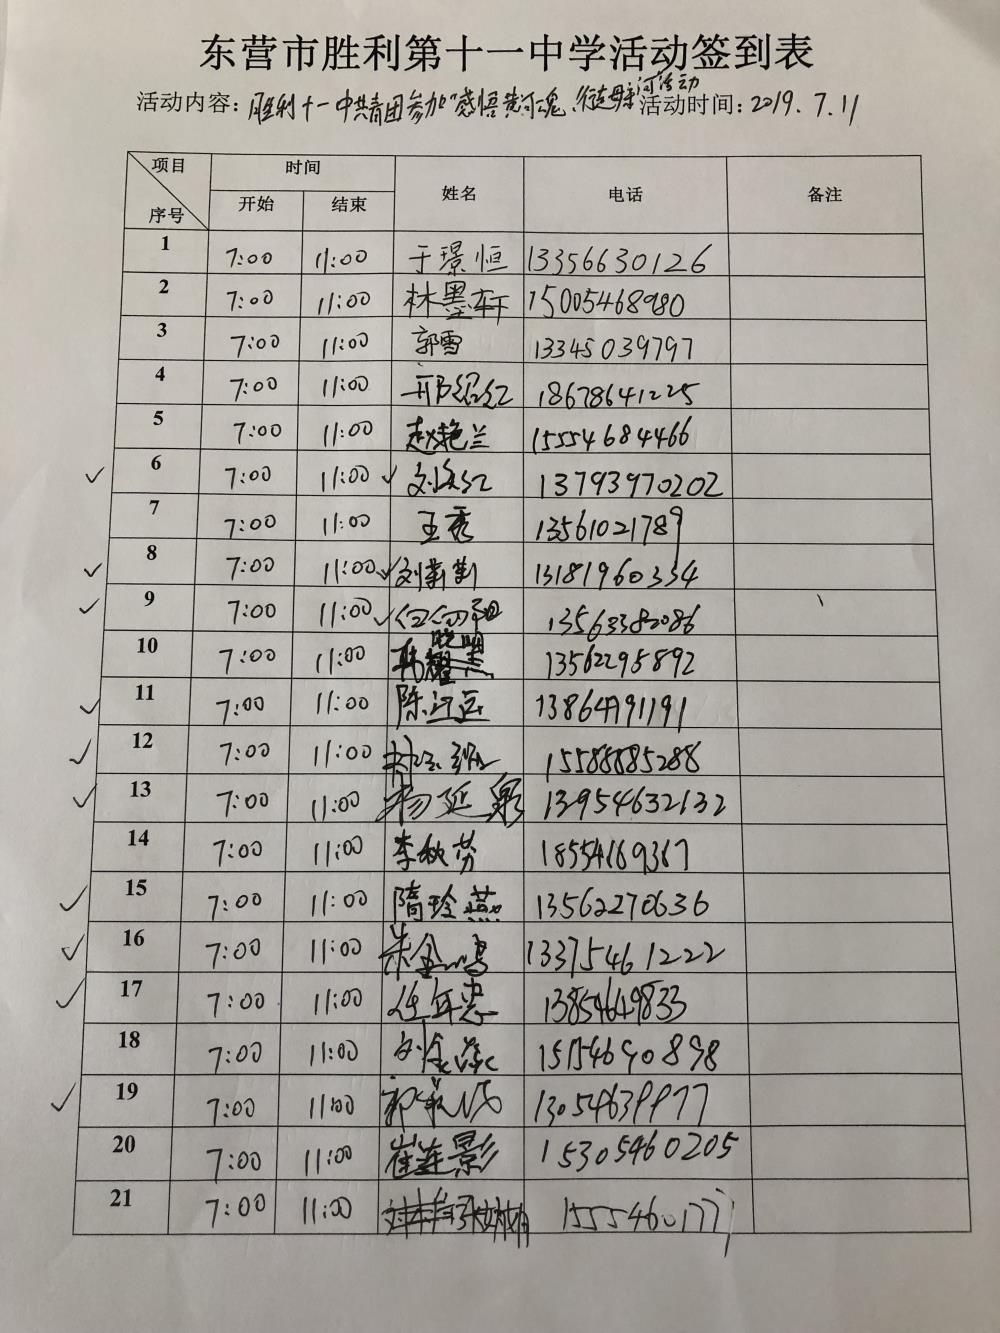 东营市胜利第十一中学活动签到表
活动内容：胜利十一中共青团参加“感悟黄河魂、徒步母亲河活动 活动时间：2019.7.11
项目 序号 时间 姓名 电话 备注
开始 结束
1 7:00 11:00 于璟恒 13356630126
2 7:00 11:00 林墨轩 15005468980
3 7:00 11:00 郭雪 13345039797
4 7:00 11:00 邢绍红 18678641225
5 7:00 11:00 赵艳兰 15554684466
6 7:00 11:00 13793970202
7 7:00 11:00 王秀 13561021789
8 7:00 11:00 刘莉莉 13181960334
9 7:00 11:00 13563382086
10 7:00 11:00 13562295892
11 7:00 11:00 陈江运 13864791191
12 7:00 11:00 15588885288
13 7:00 11:00 杨延泉 13954632132
14 7:00 11:00 李秋芬 18554169367
15 7:00 11:00 隋玲燕 13562270636
16 7:00 11:00 朱金鸣 13375461222
17 7:00 11:00 任年忠 13854649833
18 7:00 11:00 15154690898
19 7:00 11:00 13054639977
20 7:00 11:00 崔连影 15305460205
21 7:00 11:00 15554601777